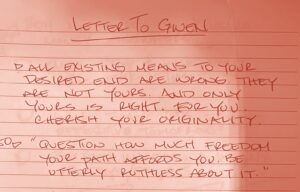 LETTER TO GWEN
ALL EXISTING MEANS TO YOUR
DESIRED END ARE WRONG. THEY
ARE NOT YOURS. AND ONLY
YOURS IS RIGHT. FOR YOU.
CHERISH YOUR ORIGINALITY.
"QUESTION HOW MUCH FREEDOM
YOUR PATH AFFORDS YOU. BE
UTTERLY RUTHLESS ABOUT IT."